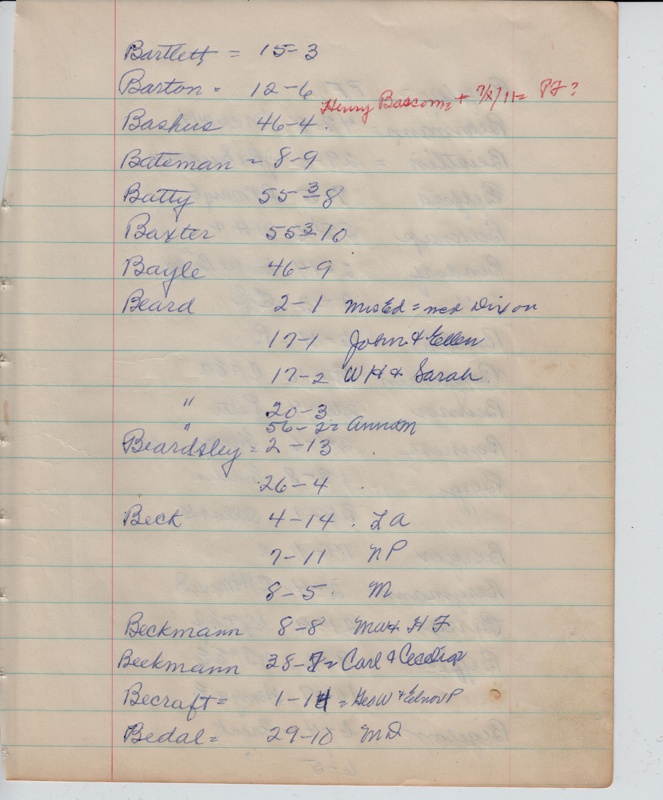 Bartlett = 15-3
Barton = 12-6
Henry Bascom = + 7/8/11 = PF?
Bashus 46-4.
Bateman = 8-9
Batty 55 3-8
Baxter 55 3-10
Bayle 46-9
Beard 2-1 Mrs Ed = nee Dixon
17-1 John & Ellen
17-2 WH & Sarah
" 20-3
" 56-2 = Ann M
Beardsley = 2-13
26-4
Beck 4-14. LA
7-11 NP
8-5. M
Beckmann 8-8 H F
Beekmann 38-7 = Carl &
Becraft = 1-14 = Geo W & Elnor P
Bedal = 29-10 MD